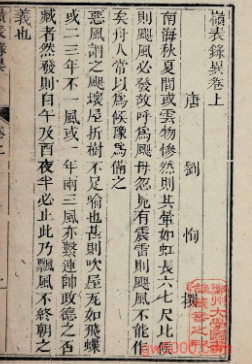 嶺表錄異卷上
唐劉恂撰
南海秋夏間或雲物慘然則其暈如虹長六七尺比候
則颶風必發故呼爲颶母忽見有震雷則颶風不能作
矣舟人常以爲候豫爲備之
惡風謂之颶壞屋折樹不足喻也甚則吹屋瓦如飛蝶
或二三年不一風或一年兩三風亦繫連帥政德之否
臧者然發則自午及酉夜半必止此乃飄風不終朝之
義也